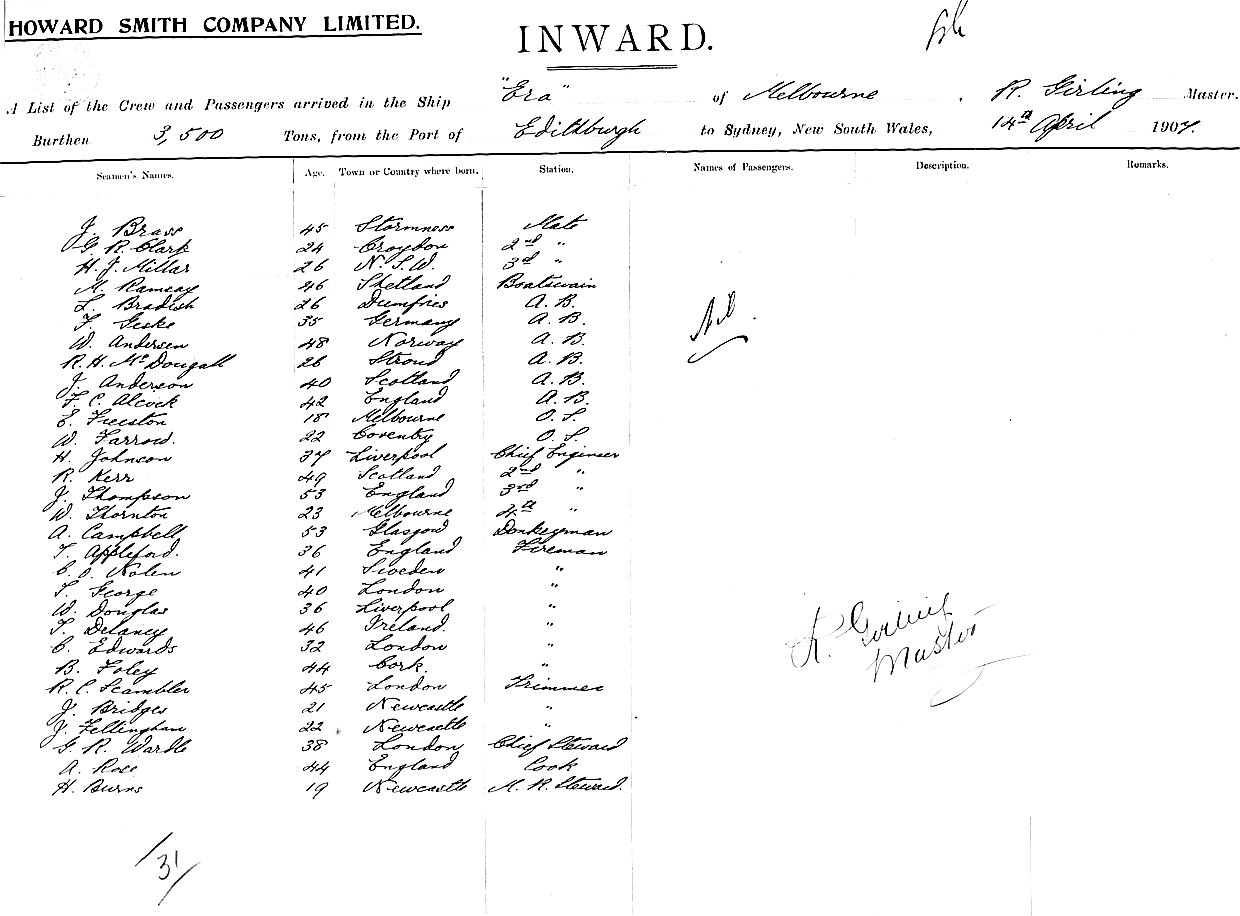 HOWARD SMITH COMPANY LIMITED.
INWARD.
A List of the Crew and Passengers arrived in the Ship "Era" of Melbourne, R. Girling Master.
Burthen 3,500 Tons, from the Port of Edithburgh to Sydney, New South Wales, 14th April 1907.
Seamen's Names. Age. Town or Country where born. Station. Names of Passengers. Description. Remarks.
J. Brass 45 Stormness Mate
G. R. Clark 24 Croydon 2nd "
H. J. Millar 26 N. S. W. 3rd "
M. Ramsay 46 Shetland Boatswain
L. Bradish 26 Dumfries A. B.
F. Geske 35 Germany A. B.
Nil.
W. Andersen 48 Norway A. B.
R. H. McDougall 26 Stroud A. B.
J. Anderson 40 Scotland A. B.
F. C. Alcock 42 England A. B.
E. Freeston 18 Melbourne O. S.
W. Farrow. 22 Coventry O. S.
H. Johnson 37 Liverpool Chief Engineer
R. Kerr 49 Scotland 2nd "
J. Thompson 53 England 3rd "
W. Thornton 23 Melbourne 4th "
A. Campbell 53 Glasgow Donkeyman
T. Appleford. 36 England Fireman
C. O. Nolen 41 Sweden "
T. George 40 London "
W. Douglas 36 Liverpool "
T. Delaney 46 Ireland. "
C. Edwards 32 London "
R. Girling
Master
B. Foley 44 Cork. "
R. C. Scambler 45 London Trimmer
J. Bridges 21 Newcastle "
J. Fellingham 22 Newcastle "
G. R. Wardle 38 London Chief Steward
A. Rose 44 England Cook
H. Burns 19 Newcastle M. R. Steward.
/31/